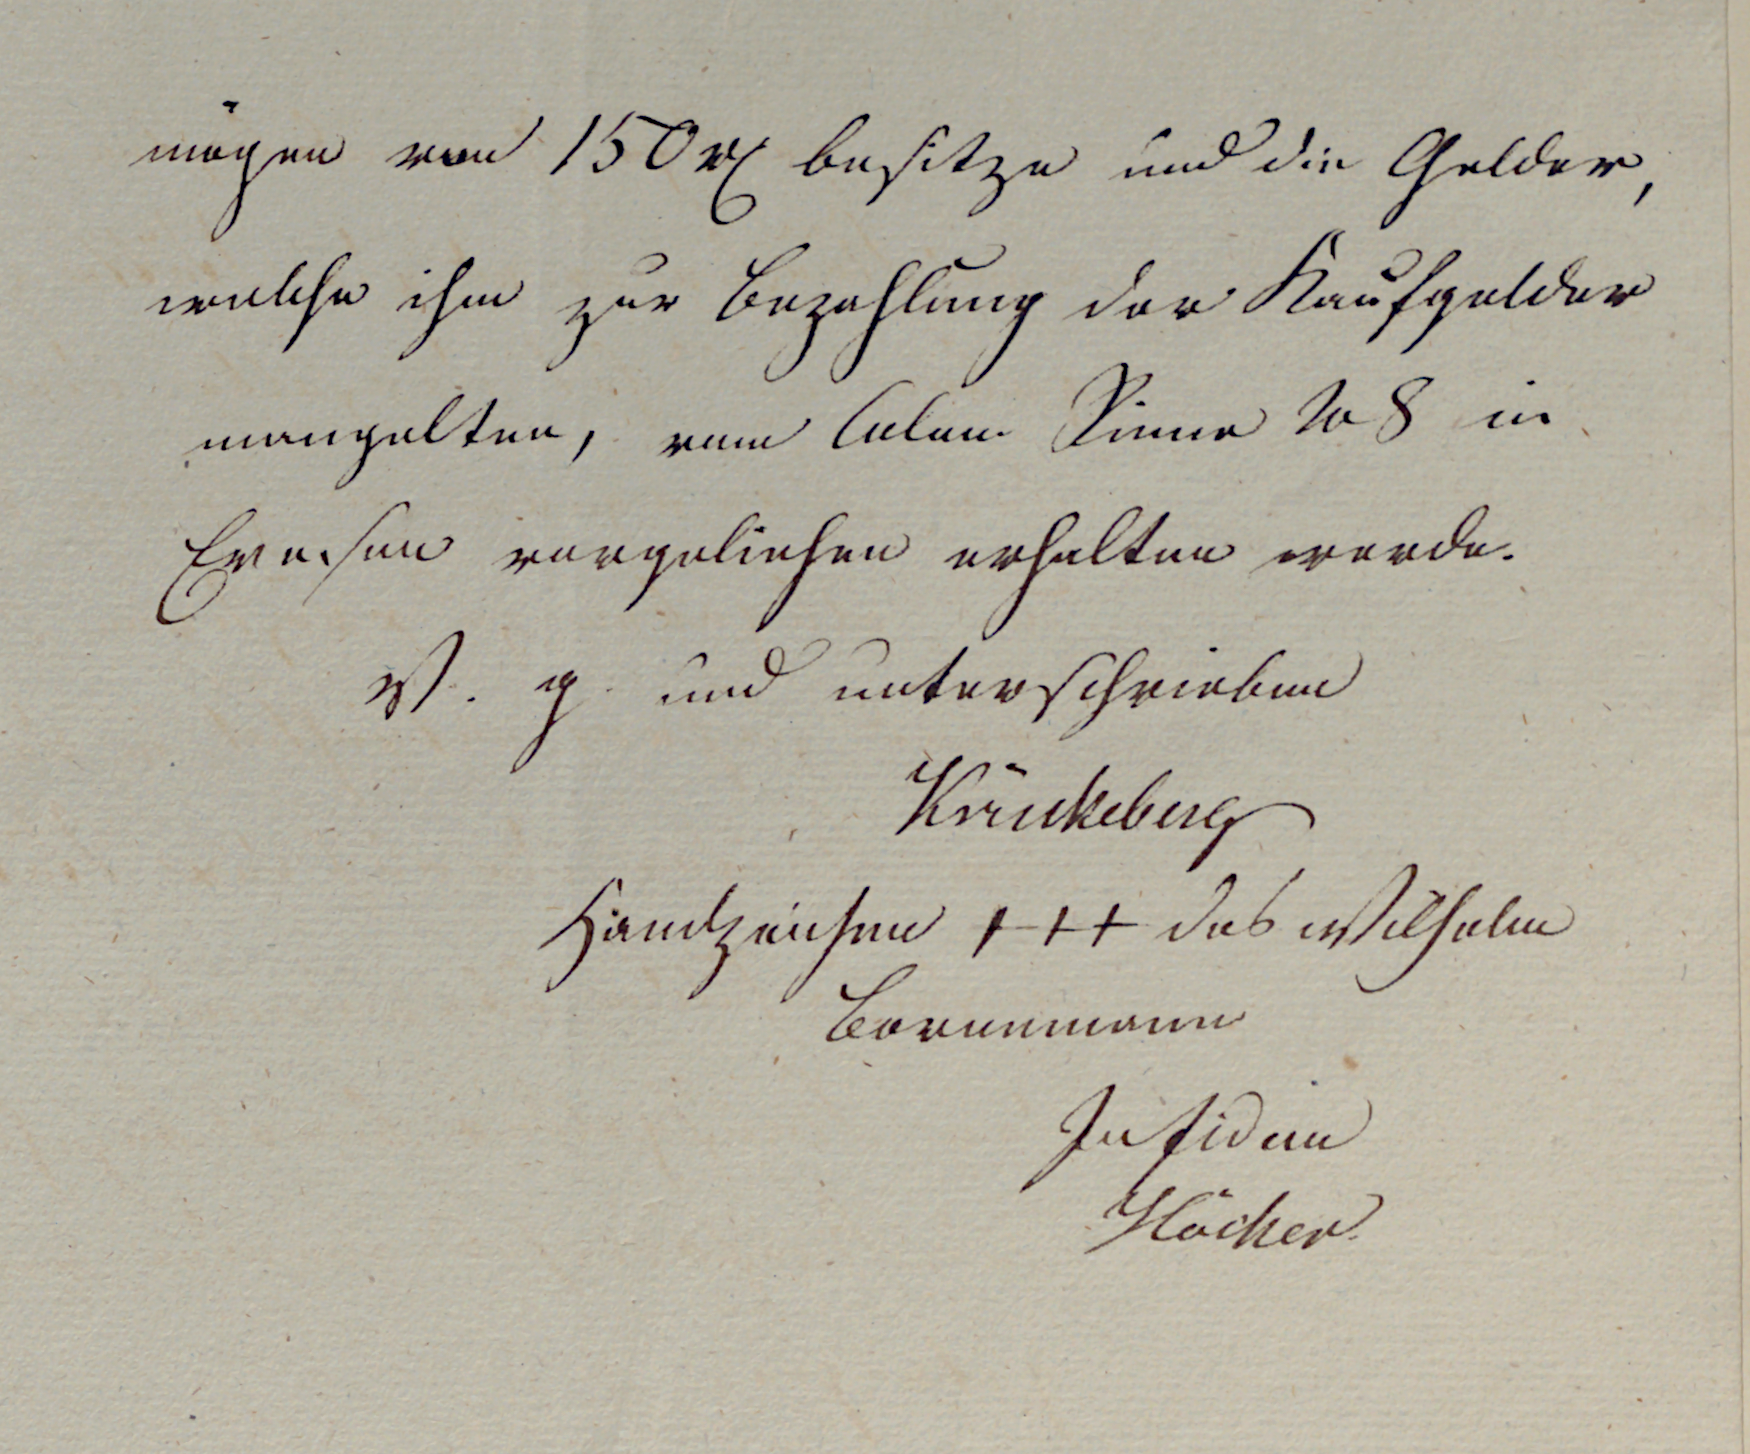 mögen von 150 rℓ besitze und die Gelder,
welche ihm zur Bezahlung der Kaufgelder
mangelten, vom Colon Sinne No 8 in
Evesen vorgeliehen erhalten werde.
V. g. und unterschrieben
Krückeberg
Handzeichen +++ des Wilhelm
Bornemann
In fidem
Höcker.